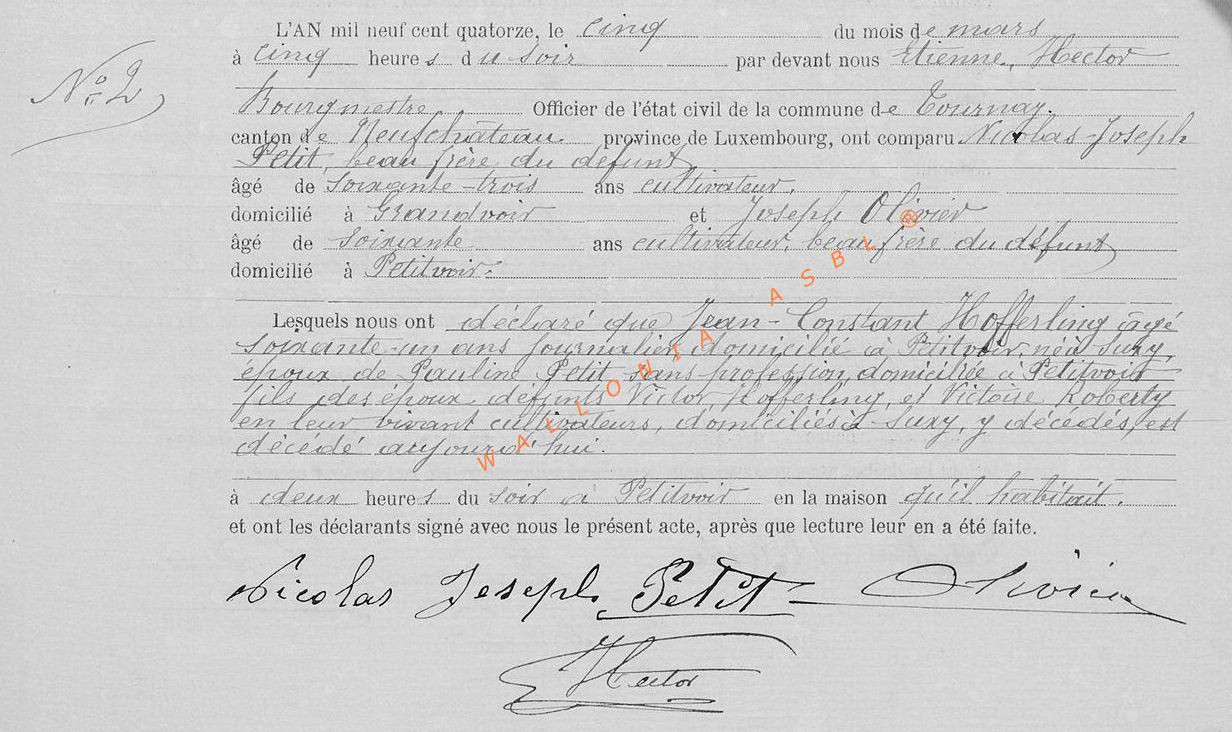 N° 2
L'AN mil neuf cent quatorze, le cinq du mois de mars
à cinq heures du soir par devant nous Etienne, Hector
Bourgmestre Officier de l'état civil de la commune de Tournay.
canton de Neufchâteau province de Luxembourg, ont comparu Nicolas-Joseph
Petit, beau frère du défunt
âgé de soixante-trois ans cultivateur,
domicilié à Grandvoir et Joseph Olivier
âgé de soixante ans cultivateur, beau frère du défunt
domicilié à Petitvoir.
Lesquels nous ont déclaré que Jean-Constant Hofferling âgé
soixante-un ans journalier, domicilié à Petitvoir, né à Suxy,
époux de Pauline Petit sans profession, domiciliée à Petitvoir
fils des époux défunts Victor Hofferling, et Victoire Roberty
en leur vivant cultivateurs, domiciliés à Suxy, y décédés, est
décédé aujourd'hui.
à deux heures du soir à Petitvoir en la maison qu'il habitait.
et ont les déclarants signé avec nous le présent acte, après que lecture leur en a été faite.
Nicolas Joseph Petit Olivier
E Hector
WALLONIA ASBL ®